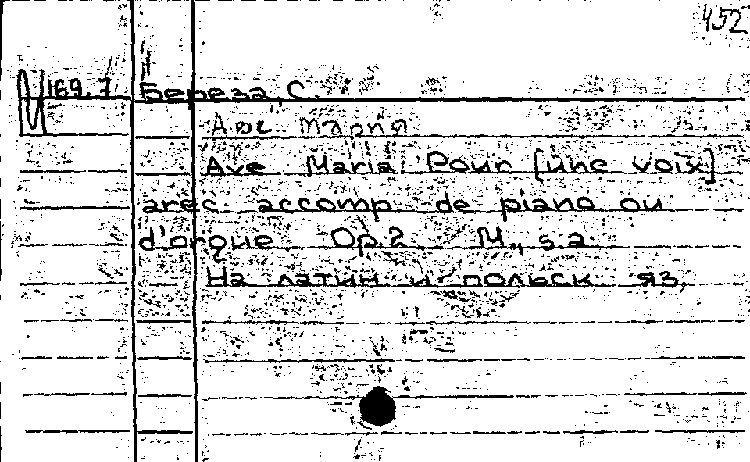 452
И 169.7 Береза, С.
Аве Мария
Ave Maria! Pour [une voix]
avec accomp. de piano ou
d'orgue Op.2. M., s.a.
На латин и польск яз,